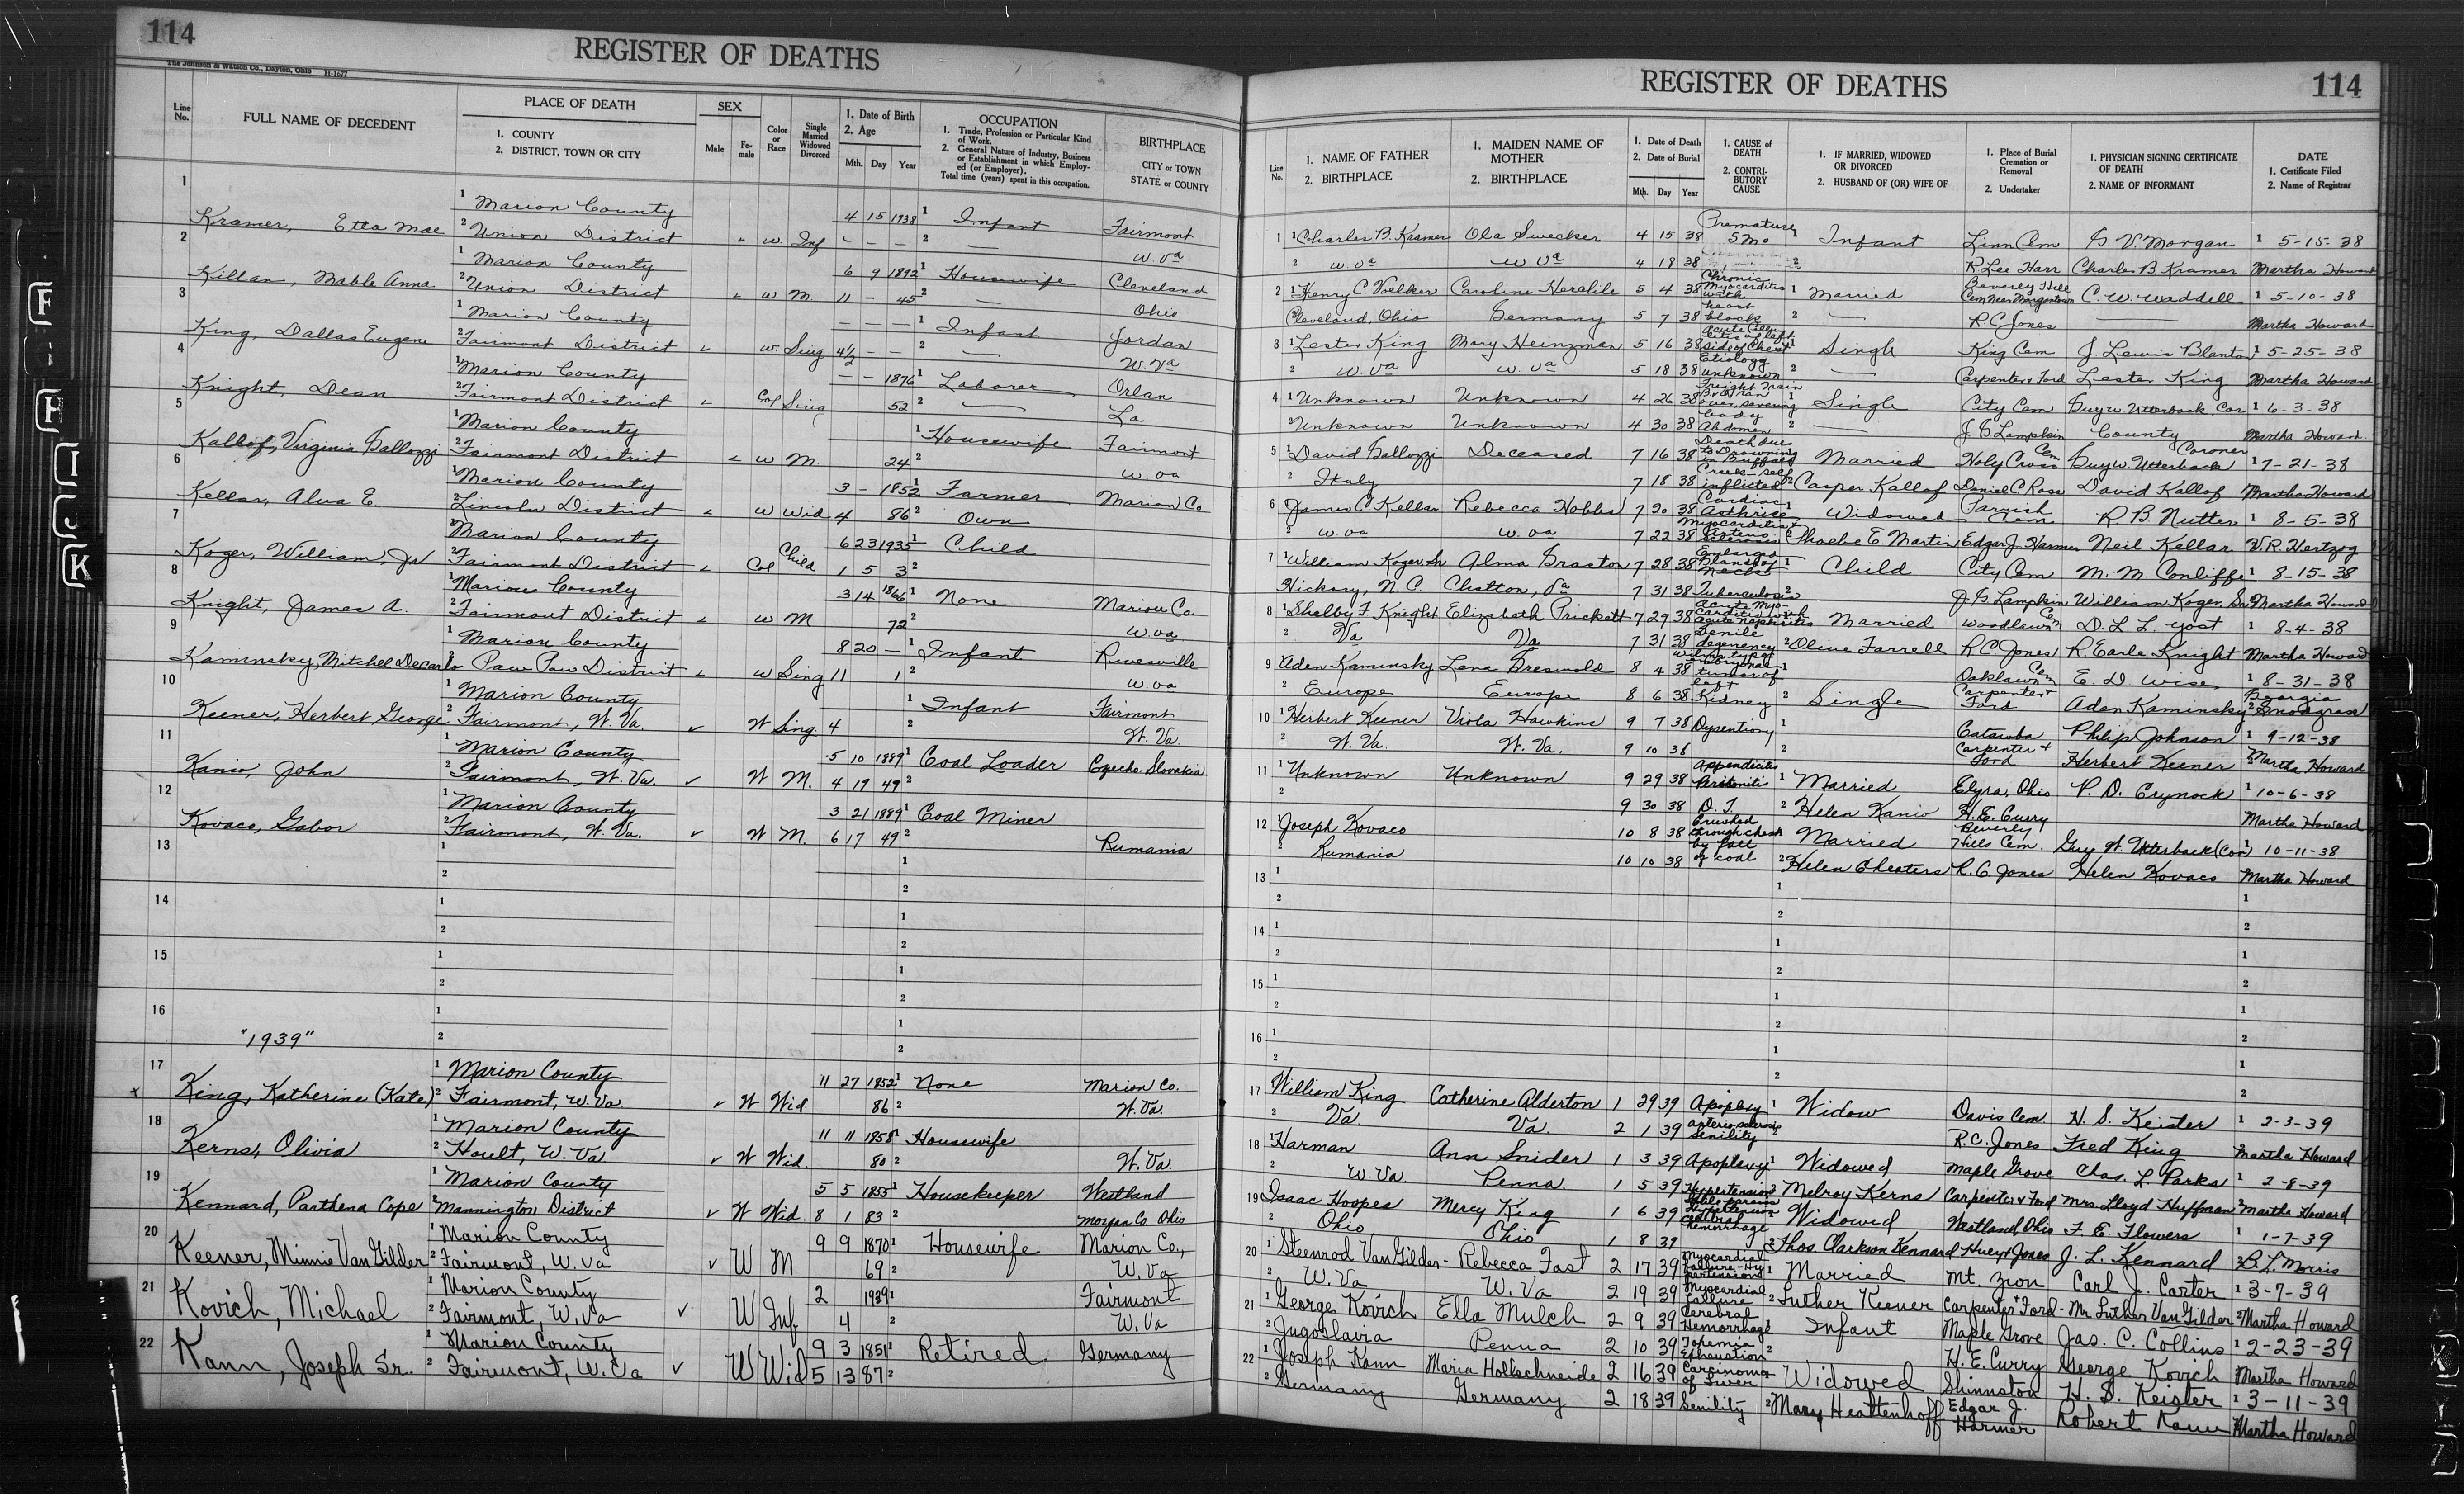 114
REGISTER OF DEATHS
The Johnson & Watson Co., Dayton, Ohio H-1077
Line No.
FULL NAME OF DECEDENT
PLACE OF DEATH
1. COUNTY
2. DISTRICT, TOWN OR CITY
SEX
Male
Female
Color or Race
Single Married Widowed Divorced
1. Date of Birth
2. Age
Mth. Day Year
OCCUPATION
1. Trade, Profession or Particular Kind of Work.
2. General Nature of Industry, Business or Establishment in which Employed (or Employer).
Total time (years) spent in this occupation.
BIRTHPLACE
CITY or TOWN
STATE or COUNTY
1 Kramer, Etta Mae 1 Marion County 4 15 1938 1 Infant Fairmont
2 Union District w. Inf - - - 2 W. Va
2 Killan, Mable Anna 1 Marion County 6 9 1892 1 Housewife Cleveland
2 Union District w M. 11 - 45 2 Ohio
3 King, Dallas Eugene 1 Marion County - - - 1 Infant Jordan
2 Fairmont District w. Sing 4½ - - 2 W. Va
4 Knight, Dean 1 Marion County - - 1876 1 Laborer Orlan
2 Fairmont District Col Sing 52 2 La
5 Kallof, Virginia Gallozzi 1 Marion County 1 Housewife Fairmont
2 Fairmont District w M. 24 2 W. va
6 Kellar, Alva E. 1 Marion County 3 - 1852 1 Farmer Marion Co
2 Lincoln District w Wid 4 86 2 Own
7 Koger, William, Jr 1 Marion County 6 23 1935 1 Child
2 Fairmont District Col Child 1 5 3 2
8 Knight, James A. 1 Marion County 3 14 1866 1 None Marion Co.
2 Fairmont District w M 72 2 W. va
9 Kaminsky, Mitchel Decarlo 1 Marion County 8 20 - 1 Infant Rivesville
2 Paw Paw District w Sing 11 1 2 W. va
10 Keener, Herbert George 1 Marion County 1 Infant Fairmont
2 Fairmont, W. Va. W Sing. 4 2 W. Va.
11 Kanio, John 1 Marion County 5 10 1889 1 Coal Loader Czecho-Slovakia
2 Fairmont, W. Va. W M. 4 19 49 2
12 Kovaco, Gabor 1 Marion County 3 21 1889 1 Coal Miner
2 Fairmont, W. Va. W M. 6 17 49 2 Rumania
13
14
15
16
"1939"
17 King, Katherine (Kate) 1 Marion County 11 27 1852 1 None Marion Co.
2 Fairmont, W. Va. W Wid. 86 2 W. Va.
18 Kerns, Olivia 1 Marion County 11 11 1858 1 Housewife
2 Hoult, W. Va W Wid. 80 2 W. Va.
19 Kennard, Parthena Cope 1 Marion County 5 5 1855 1 Housekeeper Westland
2 Mannington District W Wid. 8 1 83 2 Morgan Co. Ohio
20 Keener, Minnie Van Gilder 1 Marion County 9 9 1870 1 Housewife Marion Co.,
2 Fairmont, W. Va W M 69 2 W. Va
21 Kovich, Michael 1 Marion County 2 1939 1 Fairmont
2 Fairmont, W. Va W Inf. 4 2 W. Va
22 Kann, Joseph Sr. 1 Marion County 9 3 1851 1 Retired. Germany
2 Fairmont, W. Va W Wid 5 13 87 2
REGISTER OF DEATHS
114
Line No.
1. NAME OF FATHER
2. BIRTHPLACE
1. MAIDEN NAME OF MOTHER
2. BIRTHPLACE
1. Date of Death
2. Date of Burial
Mth. Day Year
1. CAUSE of DEATH
2. CONTRIBUTORY CAUSE
1. IF MARRIED, WIDOWED OR DIVORCED
2. HUSBAND OF (OR) WIFE OF
1. Place of Burial Cremation or Removal
2. Undertaker
1. PHYSICIAN SIGNING CERTIFICATE OF DEATH
2. NAME OF INFORMANT
DATE
1. Certificate Filed
2. Name of Registrar
1 1 Charles B. Kramer Ola Swecker 4 15 38 Premature 5 Mo 1 Infant Linn Cem G. V. Morgan 1 5-15-38
2 W. Va W Va 4 18 38 2 R Lee Harr Charles B Kramer Martha Howard
2 1 Henry C. Voelker Caroline 5 4 38 Chronic Myocarditis with heart block 1 Married Beverly Hill Cem Near Morgantown C. W. Waddell 1 5-10-38
Cleveland, Ohio Germany 5 7 38 2 R. C. Jones Martha Howard
3 1 Lester King Mary Heinzman 5 16 38 side of Chest Etiology unknown 1 Single King Cem J. Lewis Blanton 1 5-25-38
2 W. Va W. Va 5 18 38 2 Carpenter & Ford Lester King Martha Howard
4 1 Unknown Unknown 4 26 38 Freight Train B & O Ran over severing body Abdomen 1 Single City Cem Guy W Utterback Cor 1 6-3-38
2 Unknown Unknown 4 30 38 2 J. G Lampkin County Martha Howard.
5 1 David Gallozzi Deceased 7 16 38 Death due to Drowning in Buffalo Creek self inflicted Married Holy Cross Cem Guy W. Utterback Coroner 1 7-21-38
2 Italy 7 18 38 2 Casper Kallof Daniel C Ross David Kallof Martha Howard
6 James C Kellar Rebecca Hobbs 7 20 38 Cardiac Myocarditis 1 Widowed Parrish Cem R. B. Nutter 1 8-5-38
2 W. va W. va 7 22 38 2 Phoebe E. Martin Edgar J. Harmer Neil Kellar V. R. Hertzog
7 1 William Koger, Sr Alma Braston 7 28 38 Enlarged Glands of Neck 1 Child City Cem M. M. Conliffe 1 8-15-38
Hickory, N. C. Chatton, Va 7 31 38 Tuberculosis 2 J. G Lampkin William Koger, Sr 2 Martha Howard
8 1 Shelby F. Knight Elizabeth Prickett 7 29 38 Acute Myocarditis with acute nephritis Married Woodlawn Cem D. L. L. Yost 1 8-4-38
2 Va Va 7 31 38 Senile degenency 2 Olive Farrell R C Jones R. Earle Knight Martha Howard
9 1 Aden Kaminsky Lena Greswold 8 4 38 Wilms type Embryonal tumor of left Kidney 1 Oaklawn Cem E. D Wise 1 8-31-38
2 Europe Europe 8 6 38 2 Single Carpenter & Ford Aden Kaminsky 2 Georgia Snodgrass
10 1 Herbert Keener Viola Hawkins 9 7 38 Dysentiony 1 Catawba Philip Johnson 1 9-12-38
2 W. Va. W. Va. 9 10 38 2 Carpenter & Ford Herbert Keener 2 Martha Howard
11 1 Unknown Unknown 9 29 38 Appendicitis Peritonitis 1 Married Elyra, Ohio P. D. Crynock 1 10-6-38
2 9 30 38 D. T. 2 Helen Kanio H. E. Curry Martha Howard
12 1 Joseph Kovaco 10 8 38 Crushed through chest by fall of coal Married Beverly Hills Cem. Guy W. Utterback (Cor) 1 10-11-38
2 Rumania 10 10 38 2 Helen Cheaters R. C Jones Helen Kovaco Martha Howard
13
14
15
16
17 William King Catherine Alderton 1 29 39 Apoplexy 1 Widow Davis Cem. H. S. Keister 1 2-3-39
2 Va. Va. 2 1 39 Arterio sclerosis Senility 2 R. C. Jones Fred King Martha Howard
18 1 Harman Ann Snider 1 3 39 Apoplexy 1 Widowed Maple Grove Chas. L Parks 1 2-8-39
2 W. Va Penna 1 5 39 2 Melroy Kerns Carpenter & Ford Mrs. Lloyd Huffman 2 Martha Howard
19 Isaac Hoopes Mercy King 1 6 39 Hypertension cerebral hemorrhage Widowed Westland, Ohio F. E. Flowers 1 1-7-39
2 Ohio Ohio 1 8 39 2 Thos. Clarkson Kennard Huey & Jones J. L. Kennard 2 B. L. Morris
20 1 Steenrod Van Gilder - Rebecca Fast 2 17 39 Myocardial Failure - Hypertensions 1 Married Mt. Zion Carl J. Carter 1 3-7-39
2 W. Va W. Va 2 19 39 Myocardial failure 2 Luther Keener Carpenter & Ford - Mr. Luther Van Gilder 2 Martha Howard
21 1 George Kovich Ella Mulch 2 9 39 Cerebral Hemorrhage 1 Infant Maple Grove Jas. C. Collins 1 2-23-39
2 Jugoslavia Penna 2 10 39 Exhaustion 2 H. E. Curry George Kovich Martha Howard
22 1 Joseph Kann Maria Hollschneide 2 16 39 Carcinoma of Liver Widowed Shinnston H. S. Keister 1 3-11-39
2 Germany Germany 2 18 39 Senility 2 Mary Heattenhoff Edgar J. Harmer Robert Kann Martha Howard